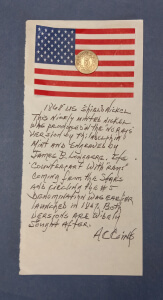 1868 US Shield Nickel
This Ninety minted nickel
was produced in the "No Rays"
version by Philadelphia
Mint and designed by
James B. Longacre. Its
"counterpart with Rays"
coming from the stars
and circling the #5
denomination was earlier
launched in 1867. Both
versions are widely
sought after.